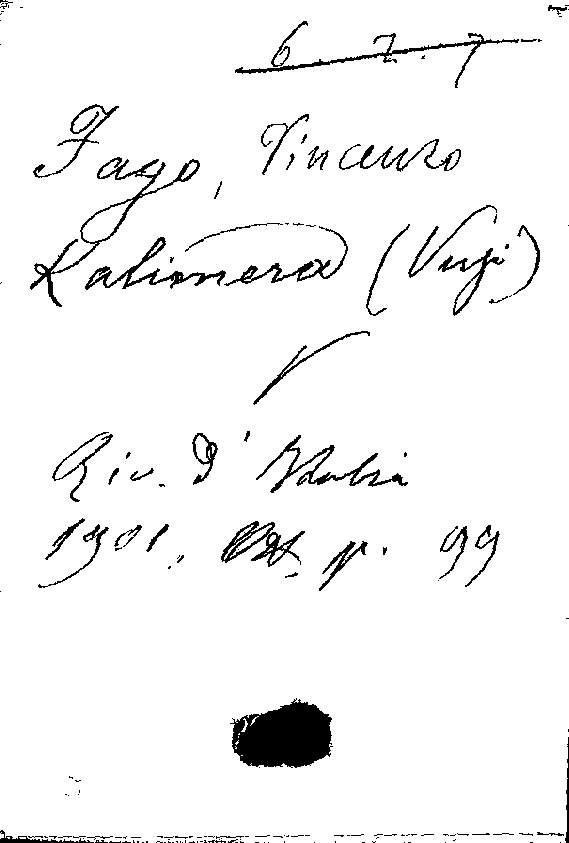 6. 2. 7
Fago, Vincenzo
Kalimera (Versi)
V
Riv. d'Italia
1901. p. 99